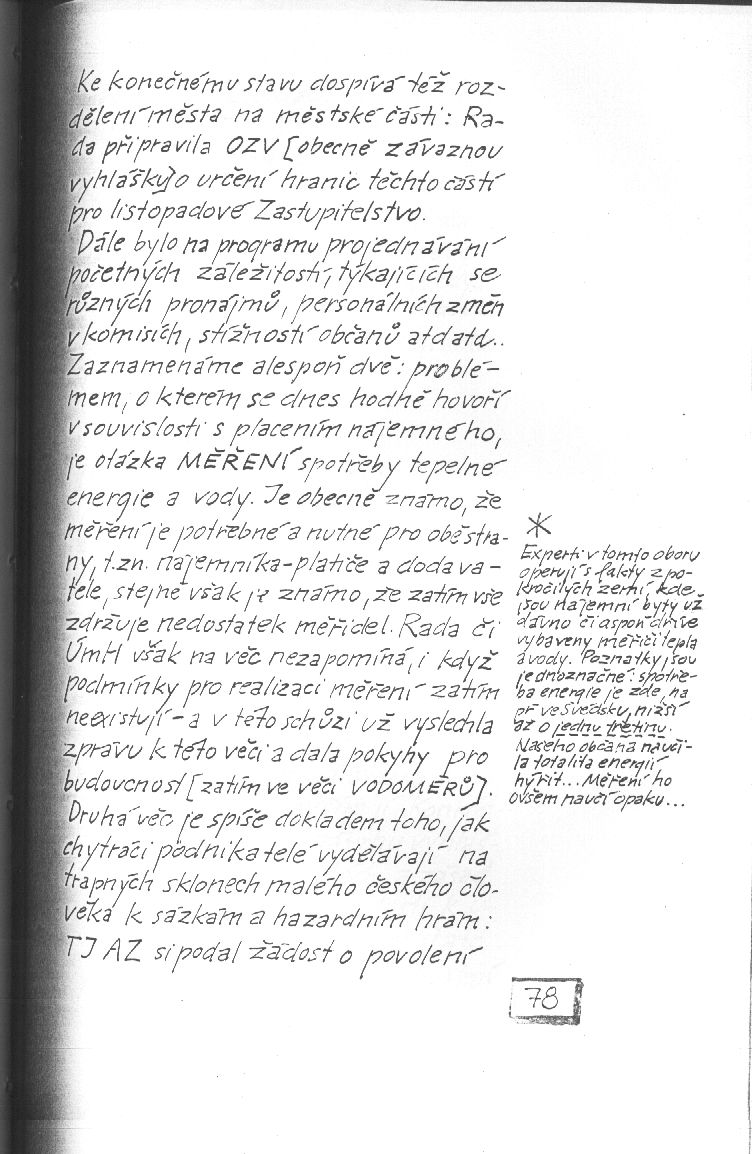 Ke konečnému stavu dospívá též roz-
dělení města na městské části: Ra-
da připravila OZV [obecně závaznou
vyhlášku] o určení hranic těchto částí
pro listopadové Zastupitelstvo.
Dále bylo na programu projednávání
početných záležitostí, týkajících se
různých pronájmů, personálních změn
v komisích, stížností občanů atd atd..
Zaznamenáme alespoň dvě: problé-
mem, o kterém se dnes hodně hovoří
v souvislosti s placením nájemného,
je otázka MĚŘENÍ spotřeby tepelné
energie a vody. Je obecně známo, že
měření je potřebné a nutné pro obě stra-
ny, t.zn. nájemníka-platiče a dodava-
tele, stejně však je známo, že zatím vše
zdržuje nedostatek měřidel. Rada či
ÚmH však na věc nezapomíná, i když
podmínky pro realizaci měření zatím
neexistují - a v této schůzi už vyslechla
zprávu k této věci a dala pokyny pro
budoucnost [zatím ve věci VODOMĚRŮ].
Druhá věc je spíše dokladem toho, jak
chytráci podnikatelé vydělávají na
trapných sklonech malého českého člo-
věka k sázkám a hazardním hrám:
TJ AZ si podal žádost o povolení
*
Experti v tomto oboru
operují s fakty z po-
kročilých zemí, kde
jsou nájemní byty už
dávno či aspoň dříve
vybaveny měřiči tepla
a vody. Poznatky jsou
jednoznačné: spotře-
ba energie je zde, na
př ve Švédsku, nižší
až o jednu třetinu.
Našeho občana nauči-
la totalita energií
hýřit... Měření ho
ovšem naučí opaku...
78